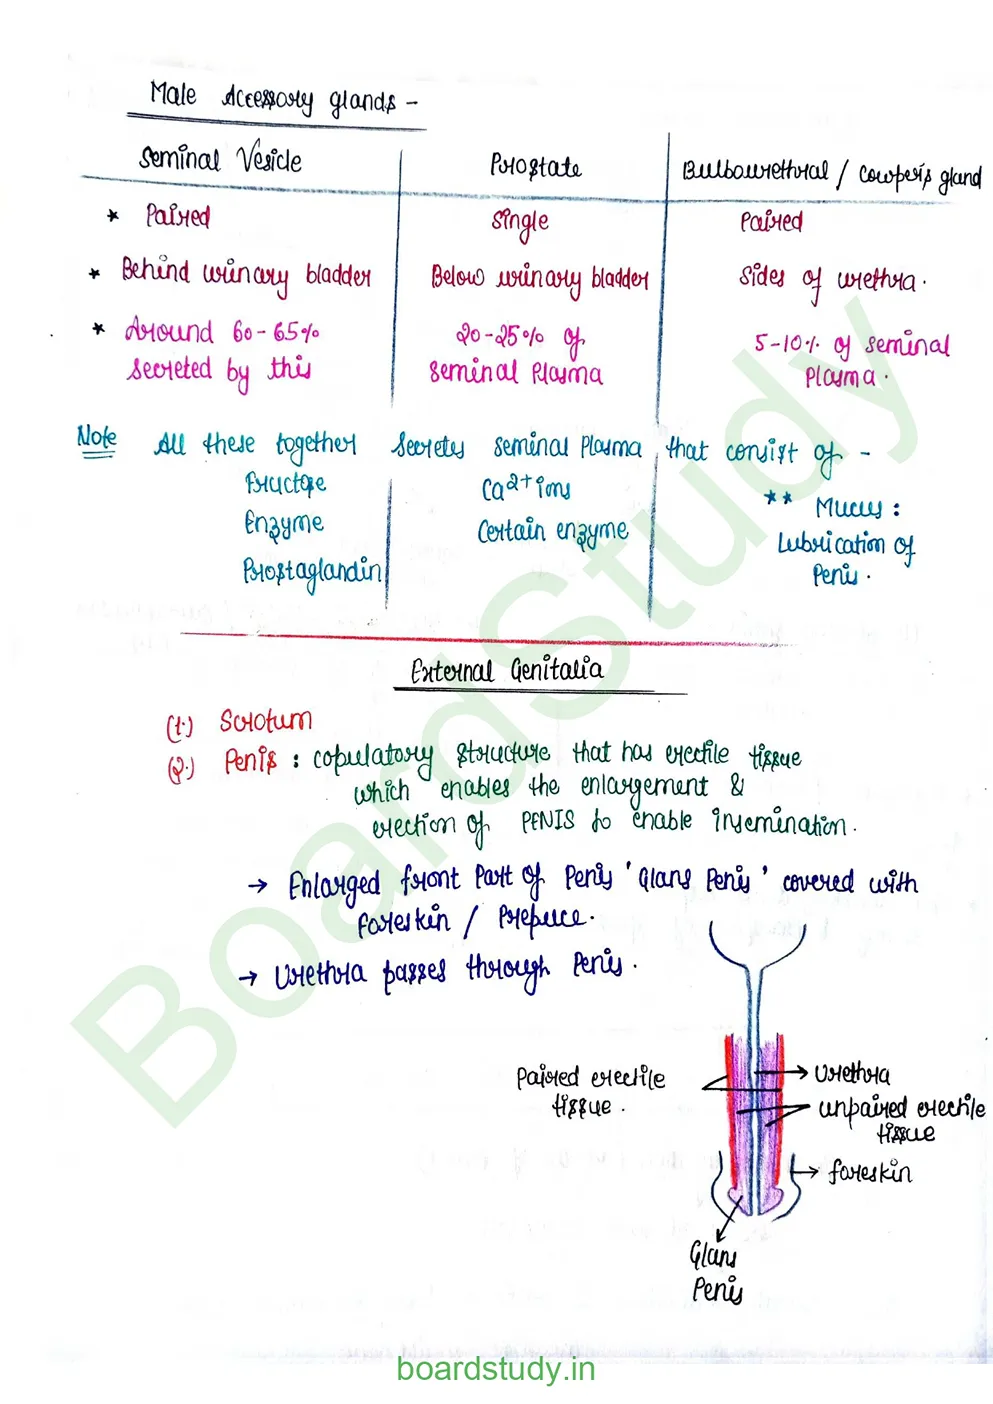 Male Accessory glands -
Seminal Vesicle
Prostate
Bulbourethral / Cowper's gland
* Paired
Single
Paired
* Behind urinary bladder
Below urinary bladder
Sides of urethra.
* Around 60-65%
secreted by this
20-25% of
seminal Plasma
5-10% of seminal
Plasma.
Note All these together secretes seminal Plasma that consist of -
Fructose
Enzyme
Prostaglandin
Ca2+ ions
Certain enzyme
** Mucus :
Lubrication of
Penis.
External Genitalia
(1.) Scrotum
(2.) Penis : copulatory structure that has erectile tissue
which enables the enlargement &
erection of PENIS to enable insemination.
→ Enlarged front part of Penis 'Glans Penis' covered with
foreskin / Prepuce.
→ Urethra passes through Penis.
Paired erectile
tissue.
→ Urethra
unpaired erectile
tissue
→ foreskin
Glans
Penis
BoardStudy
boardstudy.in